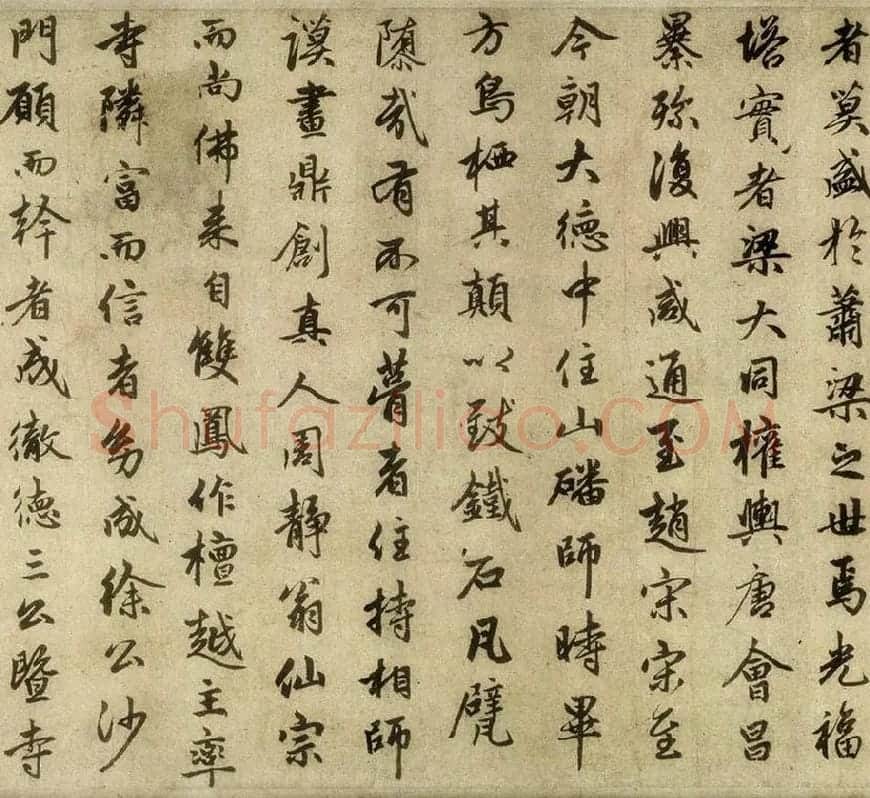 者莫盛於蕭梁之世焉光福
塔實者梁大同權輿唐會昌
㬥殄復興咸通至趙宋宋至
今朝大德中住山磻師時畢
方鳥栖其顛以致鐵石凡甓
隳哉有不可葺者住持相師
謨畫鼎創真人周靜翁仙宗
而尚佛来自雙鳳作檀越主率
寺隣富而信者多成徐公沙
門願而幹者成徹德三公暨寺
Shufaziliao.COM